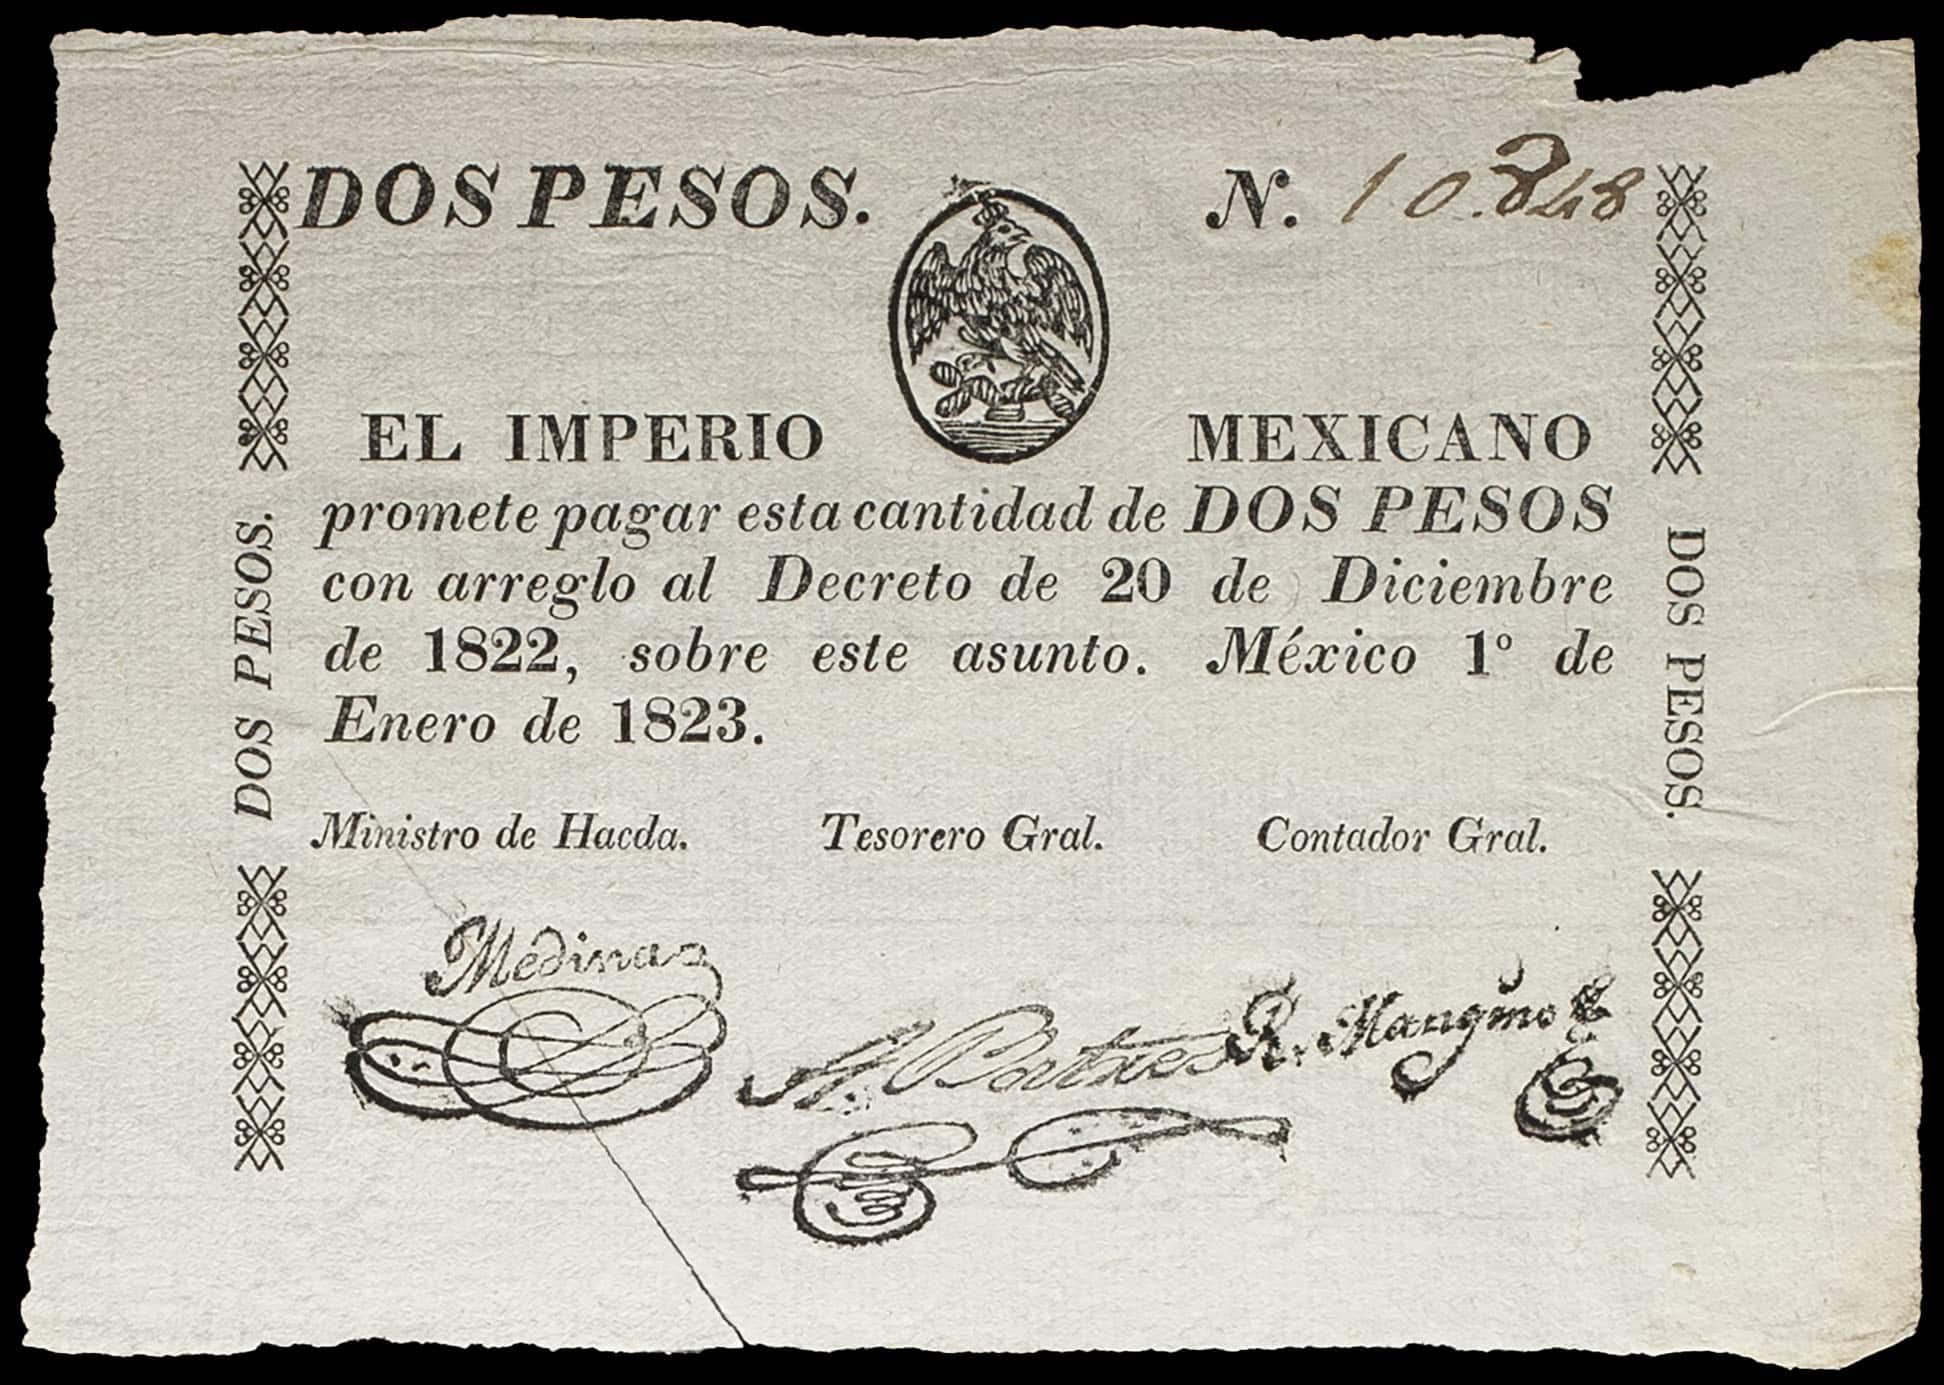 DOS PESOS. N. 10.848
EL IMPERIO MEXICANO
promete pagar esta cantidad de DOS PESOS
con arreglo al Decreto de 20 de Diciembre
de 1822, sobre este asunto. México 1º de
Enero de 1823.
Ministro de Hacda. Tesorero Gral. Contador Gral.
Medina
A. Batres
R. Mangino
DOS PESOS.
DOS PESOS.